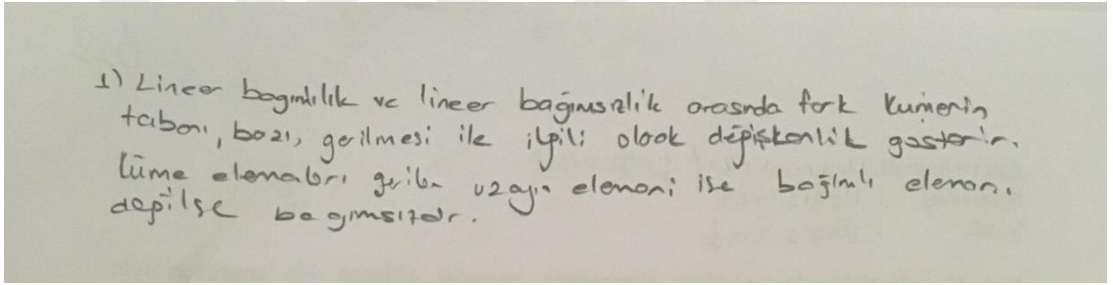 1) Lineer bagımlılık ve lineer bağımsızlik arasında fark kümenin
tabanı, bazı, gerilmesi ile ilgili olarak değişkenlik gösterir.
Küme elemanları gerilen uzayın elemanı ise bağımlı elemanı
değilse bagımsızdır.